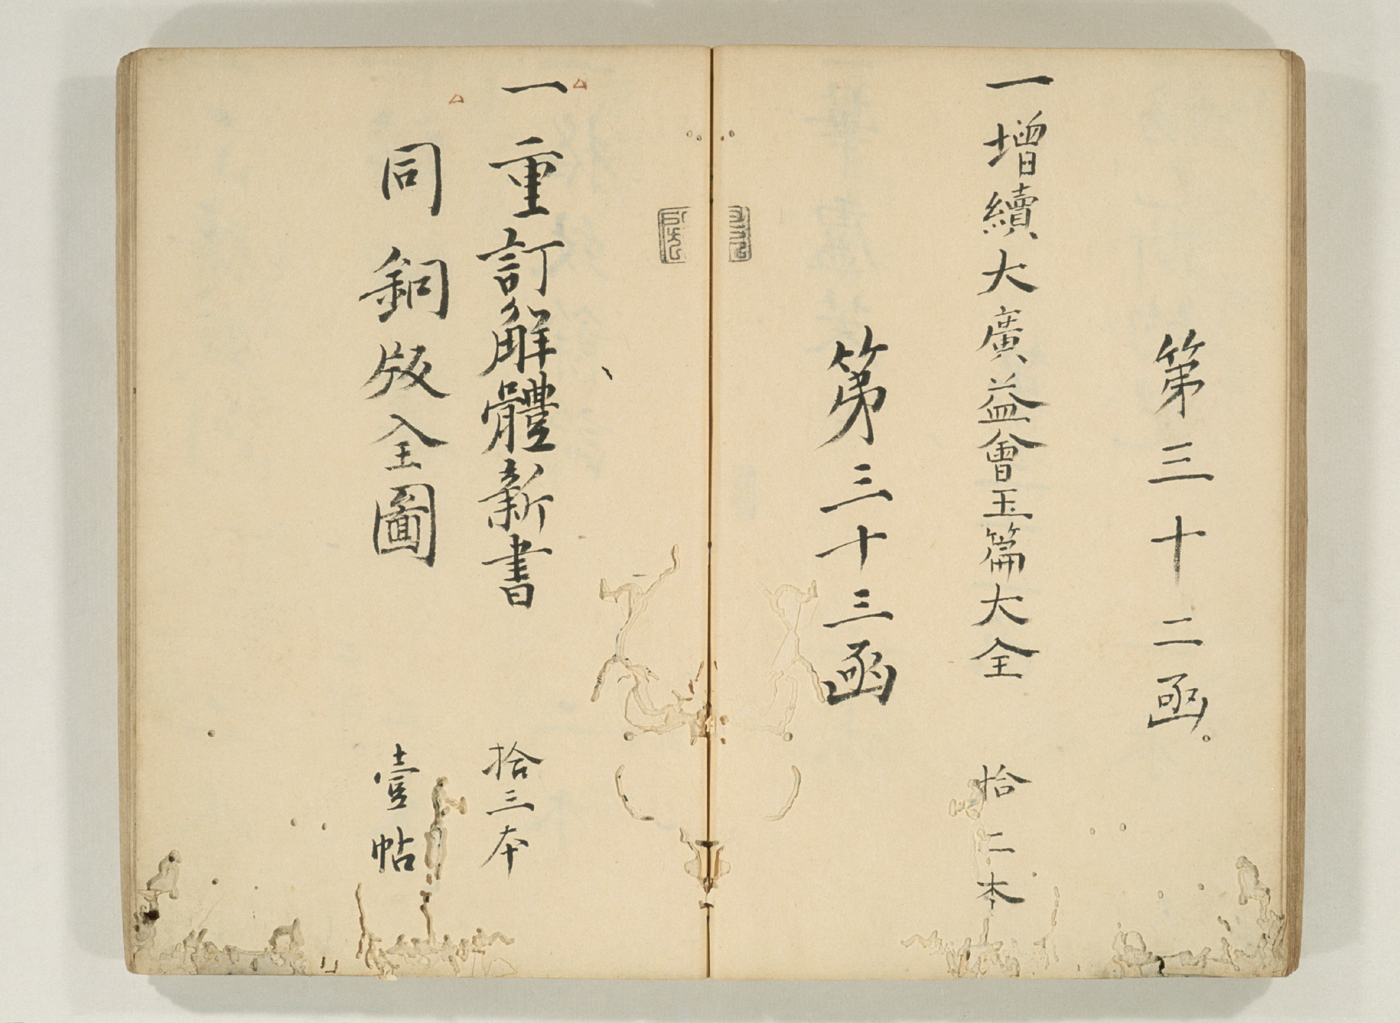 第三十二函
一増續大廣益會玉篇大全 拾二本
第三十三函
一重訂解體新書 拾三本
同銅版全圖 壹帖